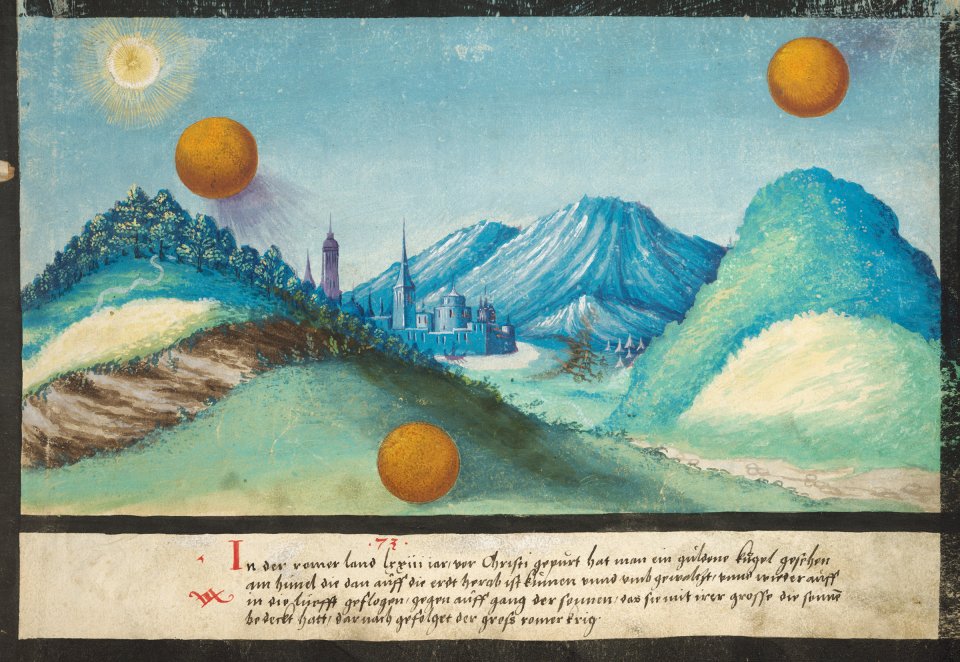 ·73·
In der romer land lxxiii iar, vor Christi gepurt hat man ein guldene kugel gesehen
am himel die dan auff die erdt herab ist kumen vnnd vmb gewalcst, vnnd wieder auff
in die lüefft geflogen, gegen auff gang der sonnen, das sie mit irer grosse die sonne
bedeckt hatt, dar nach gefolget der gros romer krig.